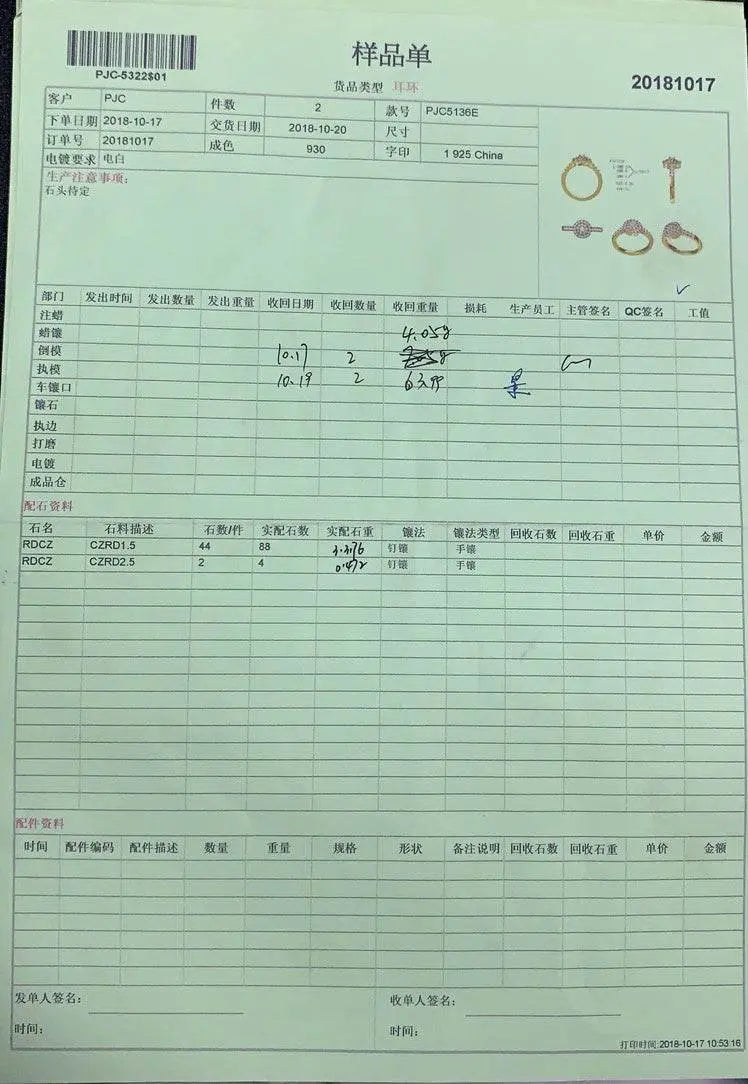 样品单
PJC-5322$01
货品类型 耳环
20181017
客户 PJC 件数 2 款号 PJC5136E
下单日期 2018-10-17 交货日期 2018-10-20 尺寸
订单号 20181017 成色 930 字印 1 925 China
电镀要求 电白
生产注意事项:
石头待定
部门 发出时间 发出数量 发出重量 收回日期 收回数量 收回重量 损耗 生产员工 主管签名 QC签名 工值
注蜡
蜡镶 4.05g
倒模 10.17 2
执模
车镶口 10.19 2
镶石
执边
打磨
电镀
成品仓
配石资料
石名 石料描述 石数/件 实配石数 实配石重 镶法 镶法类型 回收石数 回收石重 单价 金额
RDCZ CZRD1.5 44 88 钉镶 手镶
RDCZ CZRD2.5 2 4 0.472 钉镶 手镶
配件资料
时间 配件编码 配件描述 数量 重量 规格 形状 备注说明 回收石数 回收石重 单价 金额
发单人签名: 收单人签名:
时间: 时间:
打印时间:2018-10-17 10:53:16